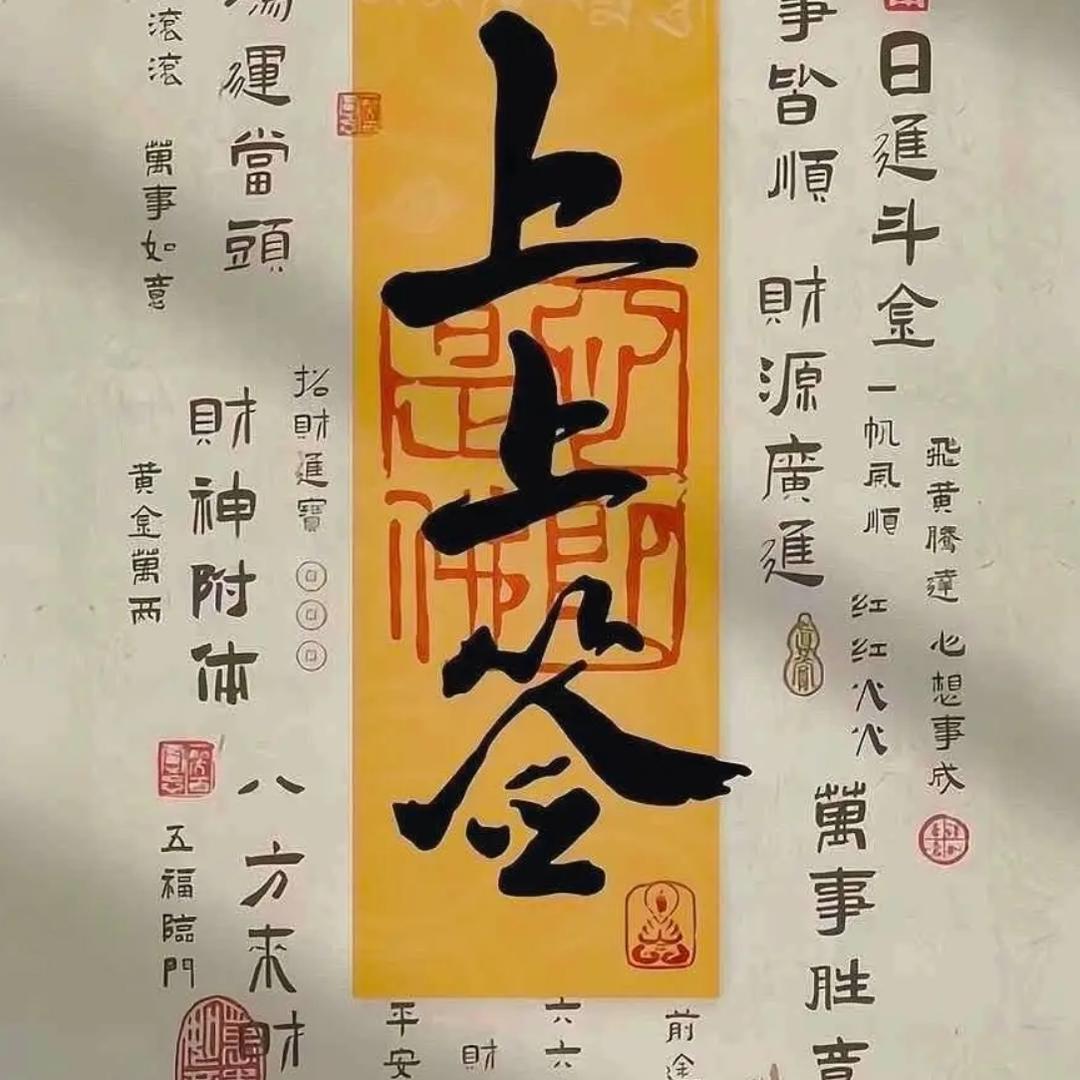 日進斗金
一帆风順
飛黄騰達
心想事成
事皆順
財源廣進
红红火火
萬事胜意
上上签
運當頭
滚滚
萬事如意
招財進寶
財神附体
黄金萬两
八方来財
五福臨門
前途
六六
財
平安